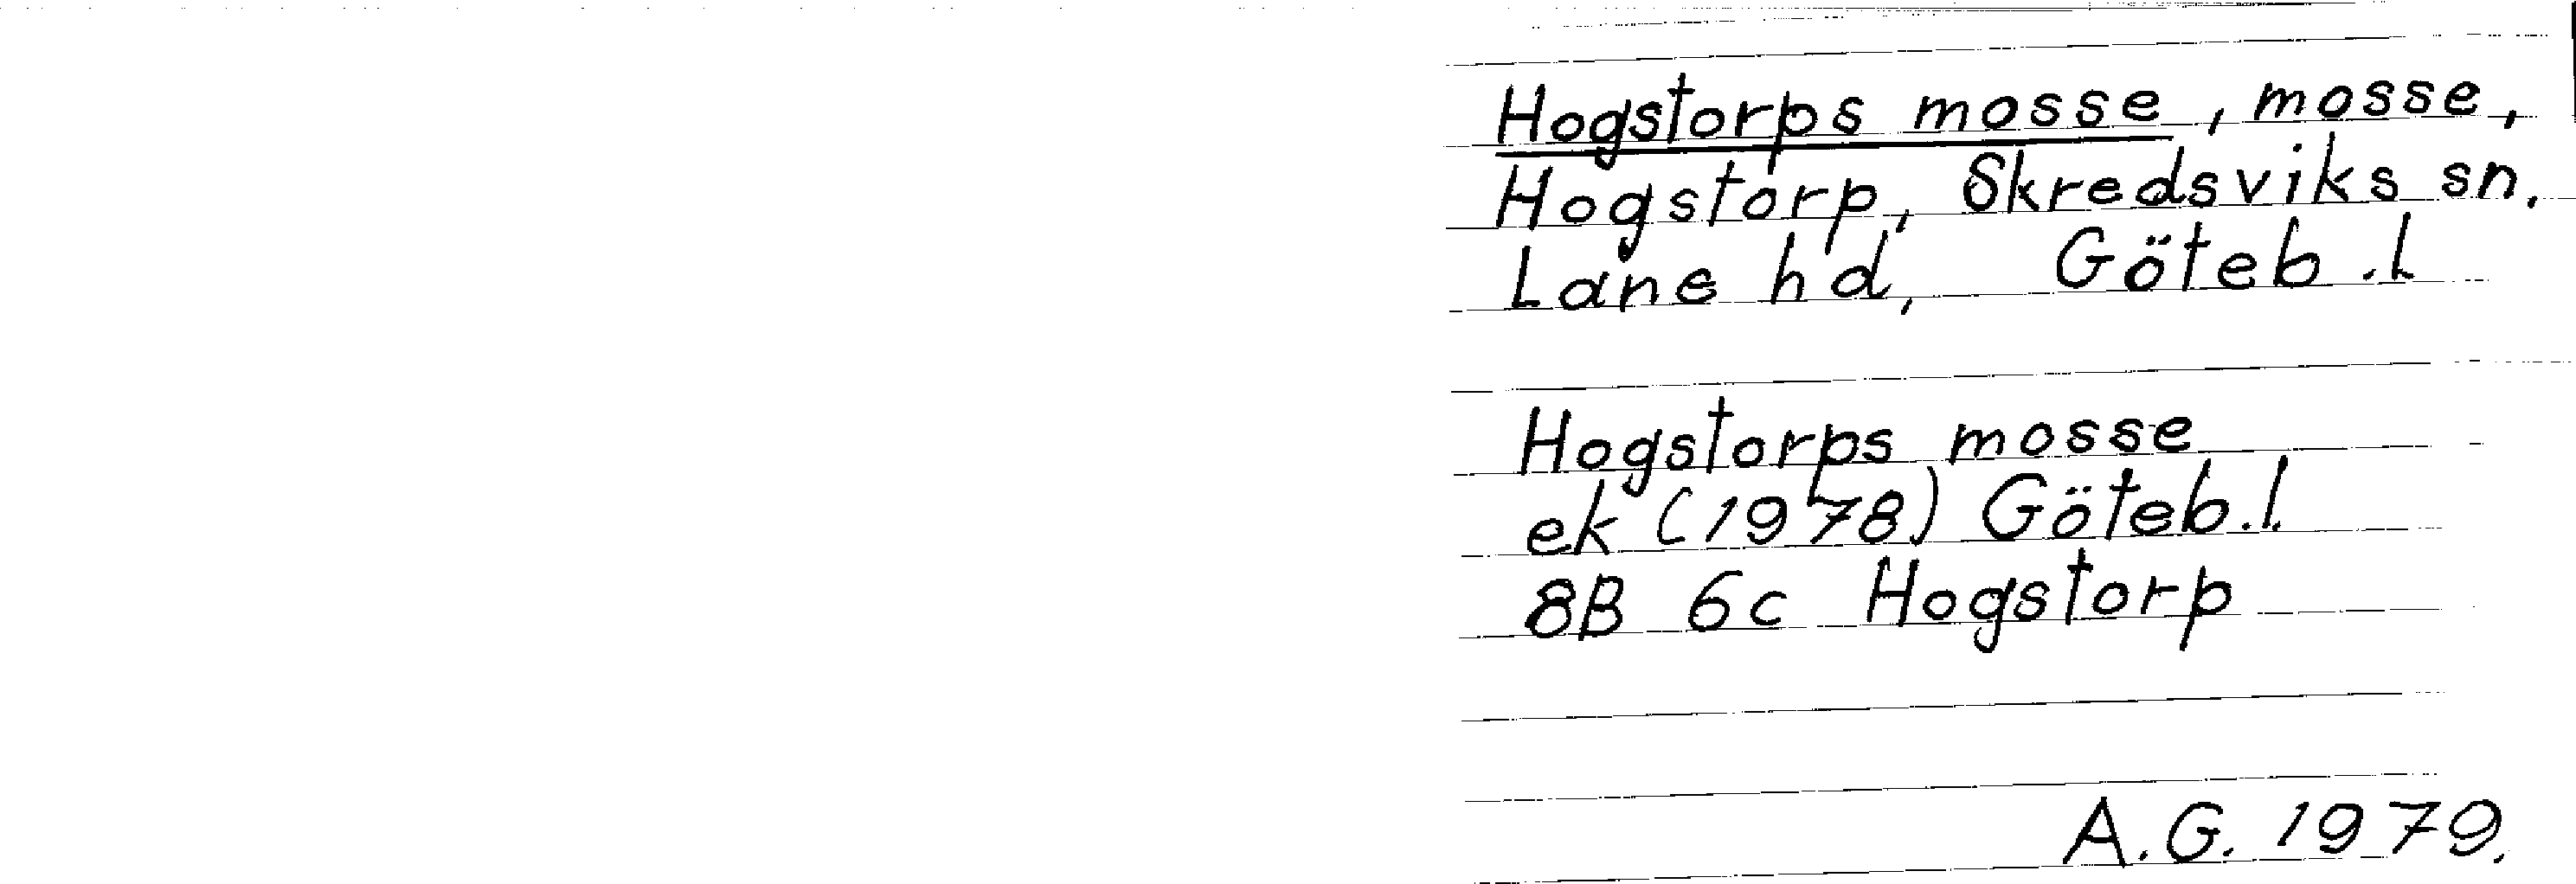 Hogstorps mosse, mosse,
Hogstorp, Skredsviks sn.
Lane hd, Göteb.l
Hogstorps mosse
ek (1978) Göteb.l.
8B 6c Hogstorp
A.G. 1979.